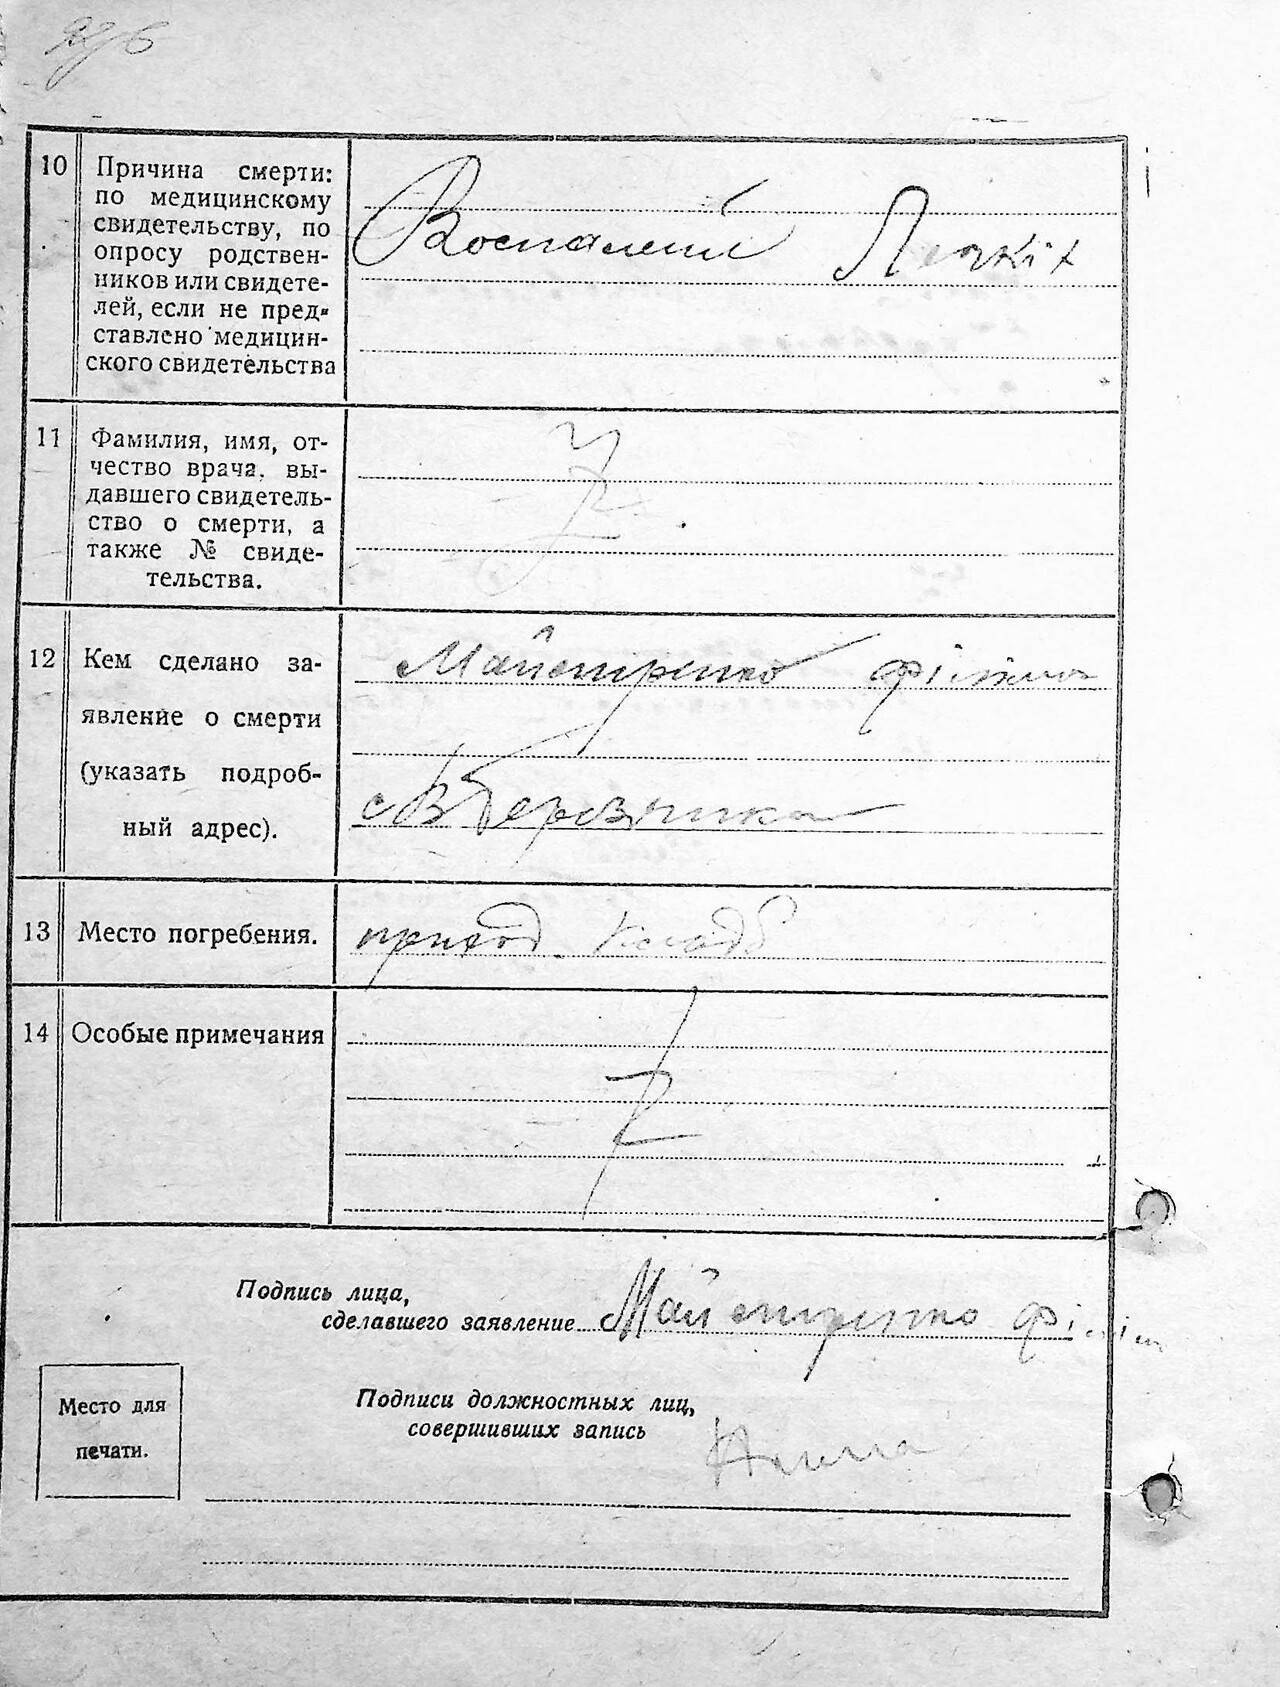 10 Причина смерти:
по медицинскому
свидетельству, по
опросу родствен-
ников или свидете-
лей, если не пред-
ставлено медицин-
ского свидетельства
Воспалений Легкіх
11 Фамилия, имя, от-
чество врача, вы-
давшего свидетель-
ство о смерти, а
также № свиде-
тельства.
12 Кем сделано за-
явление о смерти
(указать подроб-
ный адрес).
Майстренко
13 Место погребения.
приход. кладб
14 Особые примечания
Подпись лица,
сделавшего заявление Майстренко
Место для
печати.
Подписи должностных лиц,
совершивших запись